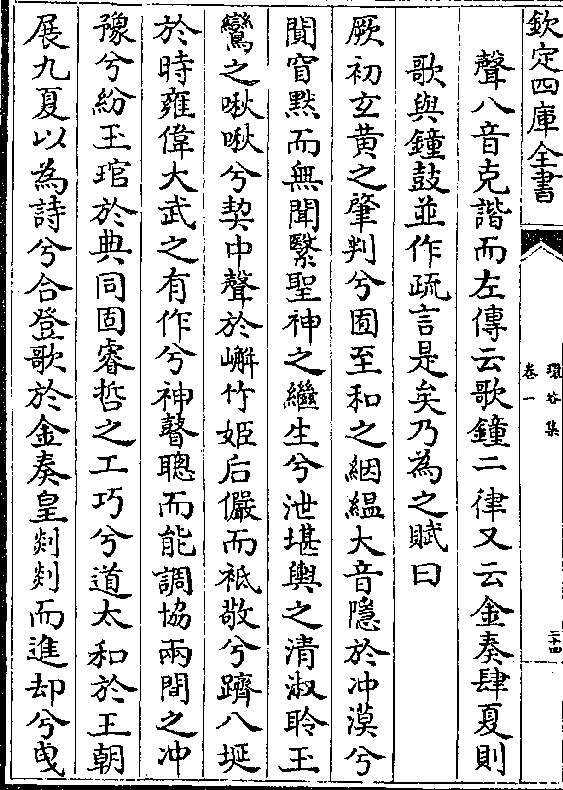 欽定四庫全書
環谷集
卷一
二十四
聲八音克諧而左傳云歌鐘二律又云金奏肆夏則
歌與鐘鼓並作疏言是矣乃為之賦曰
厥初玄黃之肇判兮固至和之絪緼大音隱於冲漠兮
閴窅默而無聞繄聖神之繼生兮泄堪輿之清淑聆玉
鸞之啾啾兮契中聲於嶰竹姬后儼而祗敬兮躋八埏
於時雍偉大武之有作兮神瞽聰而能調協兩間之冲
豫兮紛玉琯於典同固睿哲之工巧兮道太和於王朝
展九夏以為詩兮合登歌於金奏皇剡剡而進却兮曳